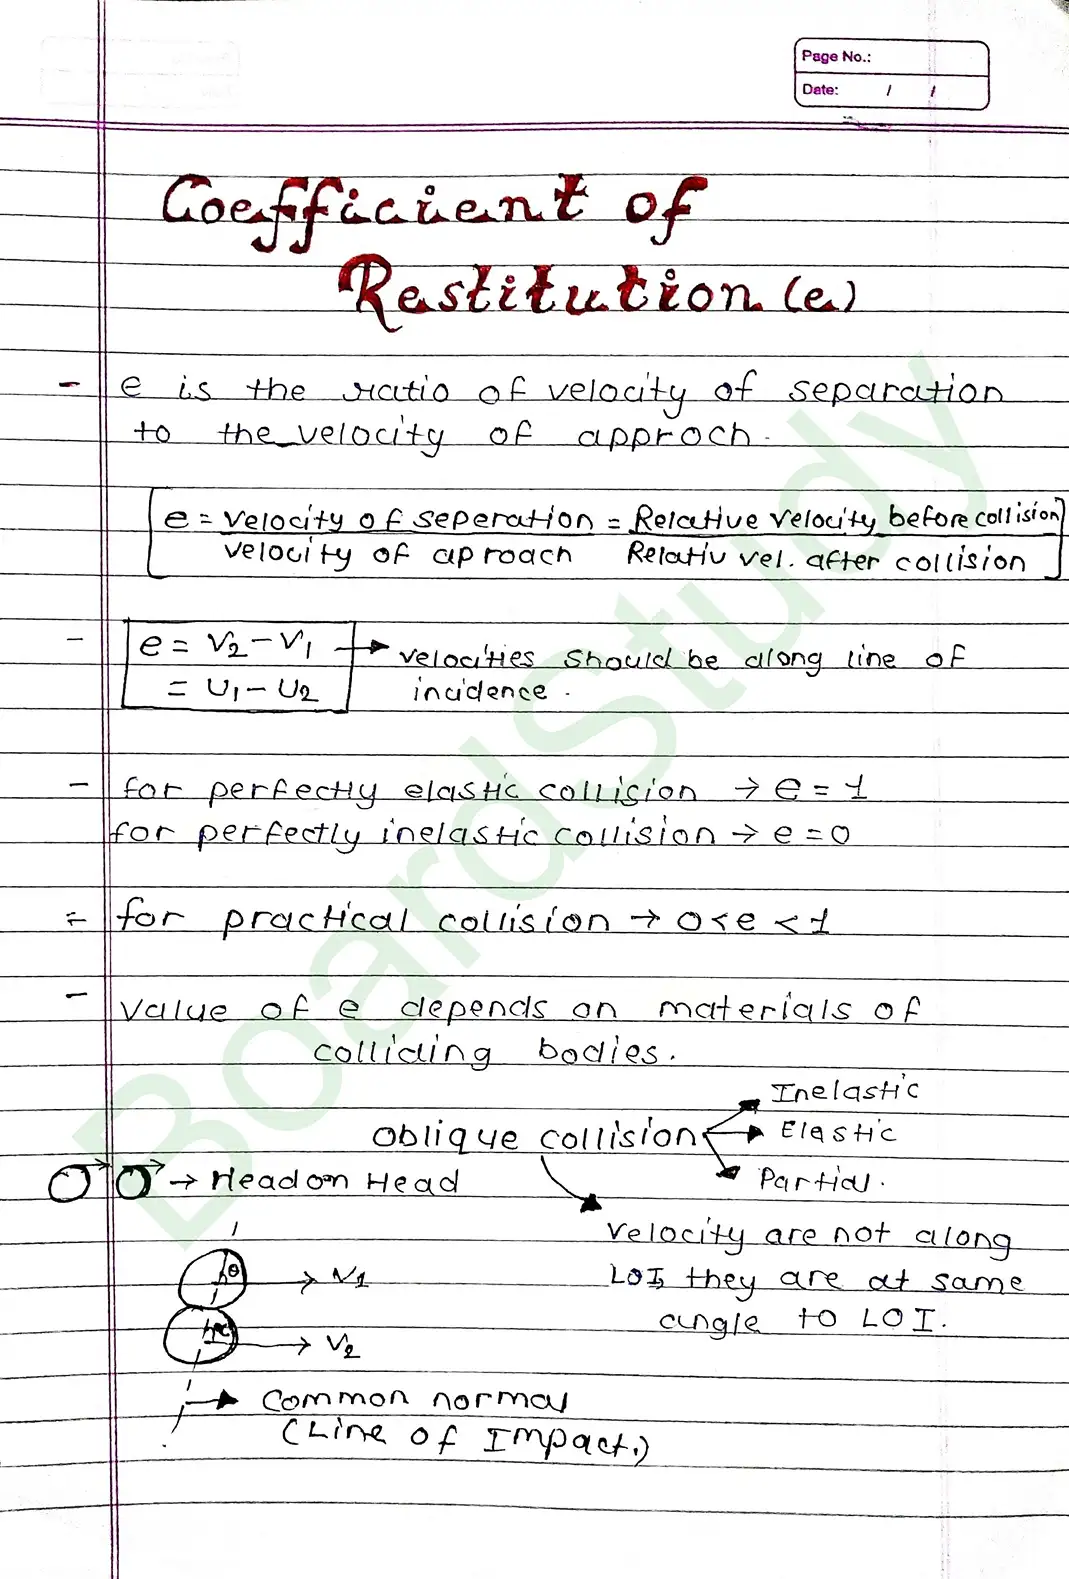 Page No.:
Date: / /
Coefficient of
Restitution (e)
- e is the ratio of velocity of separation
to the velocity of approch.
e = velocity of seperation = Relative velocity before collision
velocity of aproach Relativ vel. after collision
- e = V2 - V1 → velocities should be along line of
= U1 - U2 incidence.
- for perfectly elastic collision → e = 1
for perfectly inelastic collision → e = 0
- for practical collision → 0 < e < 1
- value of e depends on materials of
colliding bodies.
Inelastic
Oblique collision → Elastic
Partial.
→ Head on Head
Velocity are not along
LOI, they are at same
angle to LOI.
θ → V1
→ V2
→ Common normal
(Line of Impact.)
BoardStudy